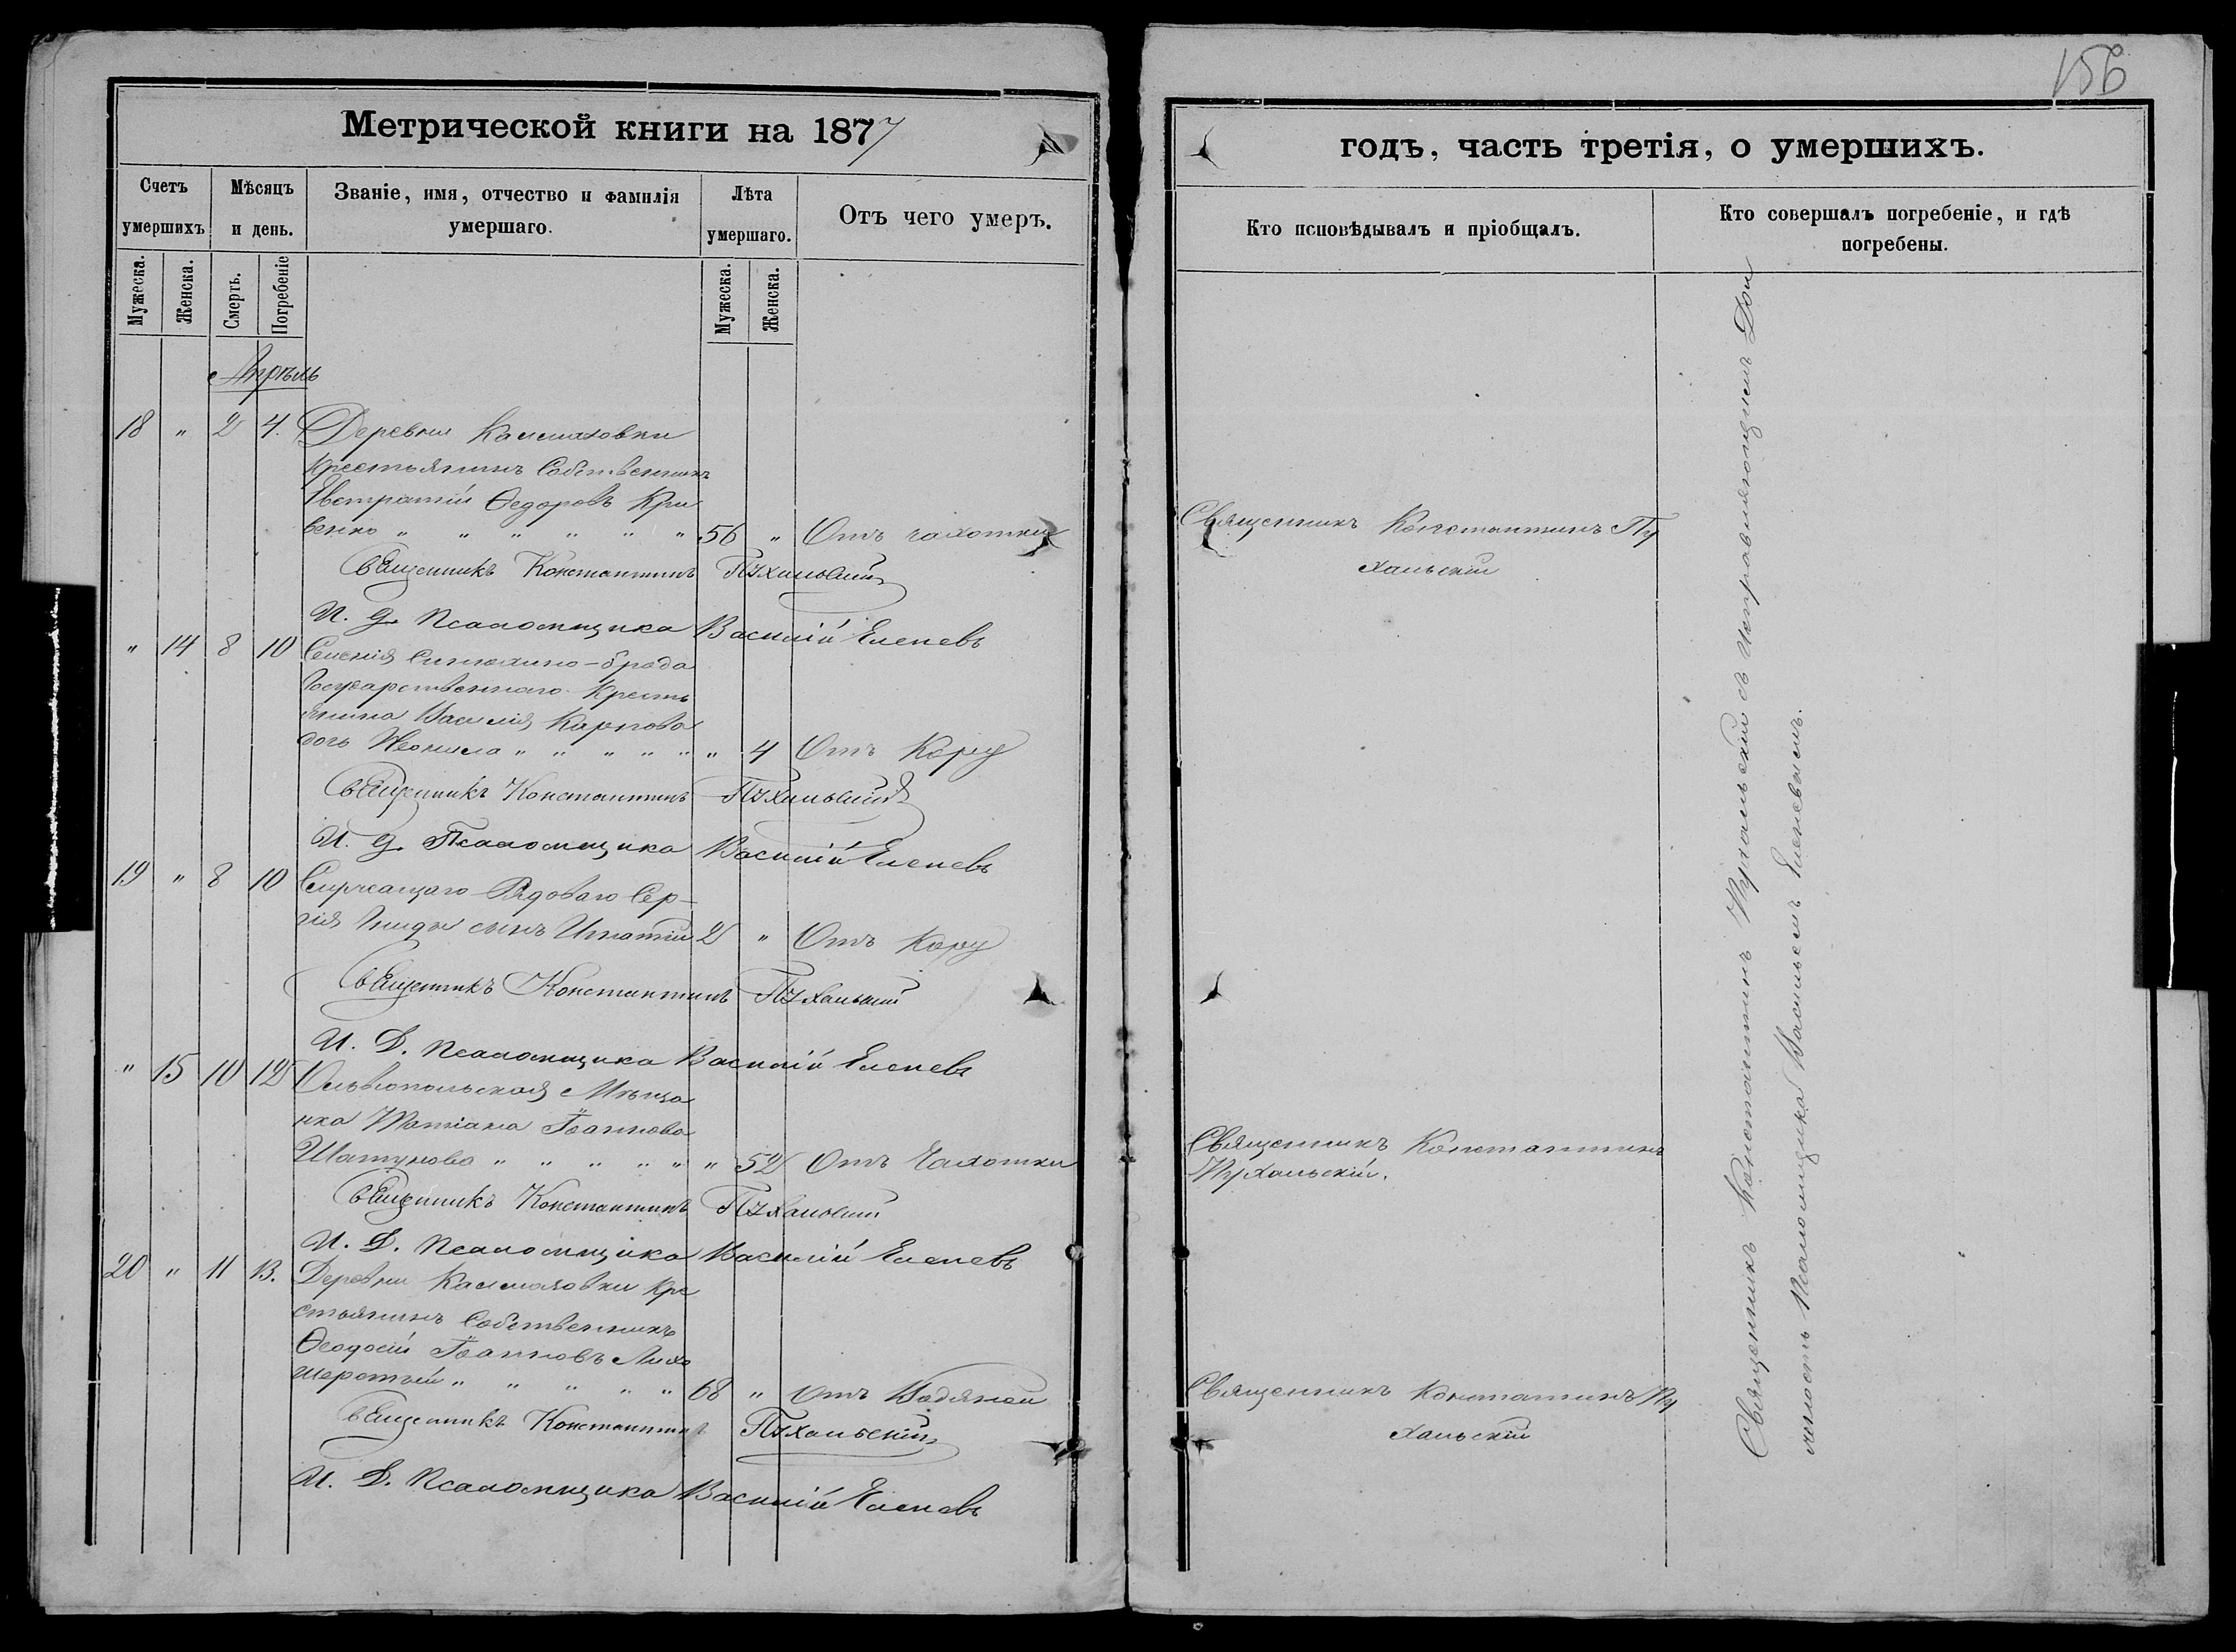 156
Метрической книги на 1877
годъ, часть третія, о умершихъ.
Счетъ умершихъ.
Мѣсяцъ и день.
Званіе, имя, отчество и фамилія умершаго.
Лѣта умершаго.
Отъ чего умеръ.
Кто исповѣдывалъ и пріобщалъ.
Кто совершалъ погребеніе, и гдѣ погребены.
Мужеска. Женска. Смерть. Погребеніе Мужеска. Женска.
Апрѣль
18 " 2 4. Деревни Калмазовки
Крестьянинъ Собственникъ
Евстратій Ѳедоровъ Кри
венко " " " " " " 56 " Отъ чахотки
Священникъ Константинъ Пу
хальскій
Священникъ Константинъ Пухальскій
И. д. Псаломщика Василій Еленевъ
" 14 8 10 Селенія
Государственнаго Кресть
янина Василія Карпова
дочь Неонила " " " " " " 4 Отъ Кору
Священникъ Константинъ Пухальскій
И. д. Псаломщика Василій Еленевъ
19 " 8 10 Рядоваго Сер-
гія Гниды сынъ Игнатій 2 " Отъ Кору
Священникъ Константинъ Пухальскій
И. Д. Псаломщика Василій Еленевъ
" 15 10 12 Ольвіопольская Мѣща
нка Татіана Іоаннова
" " " " " " 52 Отъ Чахотки
Священникъ Константинъ
Пухальскій.
Священникъ Константинъ Пухальскій
И. Д. Псаломщика Василій Еленевъ
20 " 11 13. Деревни Калмазовки Кре
стьянинъ Собственникъ
Ѳеодосій Іоанновъ Лихо
шерстый " " " " " 68 " Отъ Водяной
Священникъ Константинъ Пу
хальскій
Священникъ Константинъ Пухальскій
И. Д. Псаломщика Василій Еленевъ
Священникъ Константинъ Пухальскій съ Исправляющимъ Дол
жность Псаломщика Васильемъ Еленевымъ.